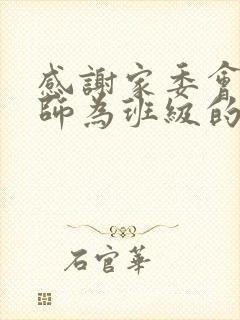 感謝家委會
師為班級的
石官華